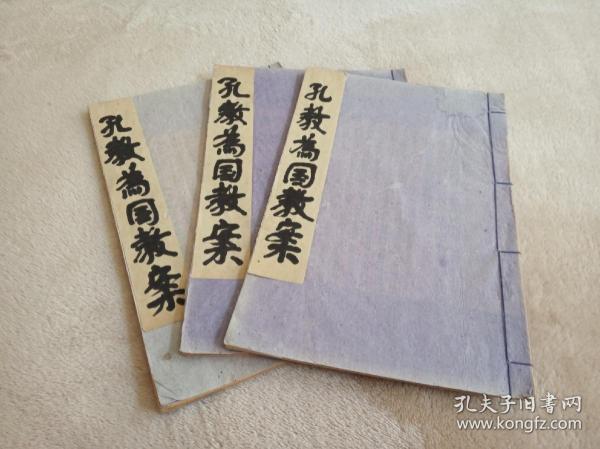 孔教為国教案
孔教為国教案
孔教為国教案
孔夫子旧書网
www.kongfz.com